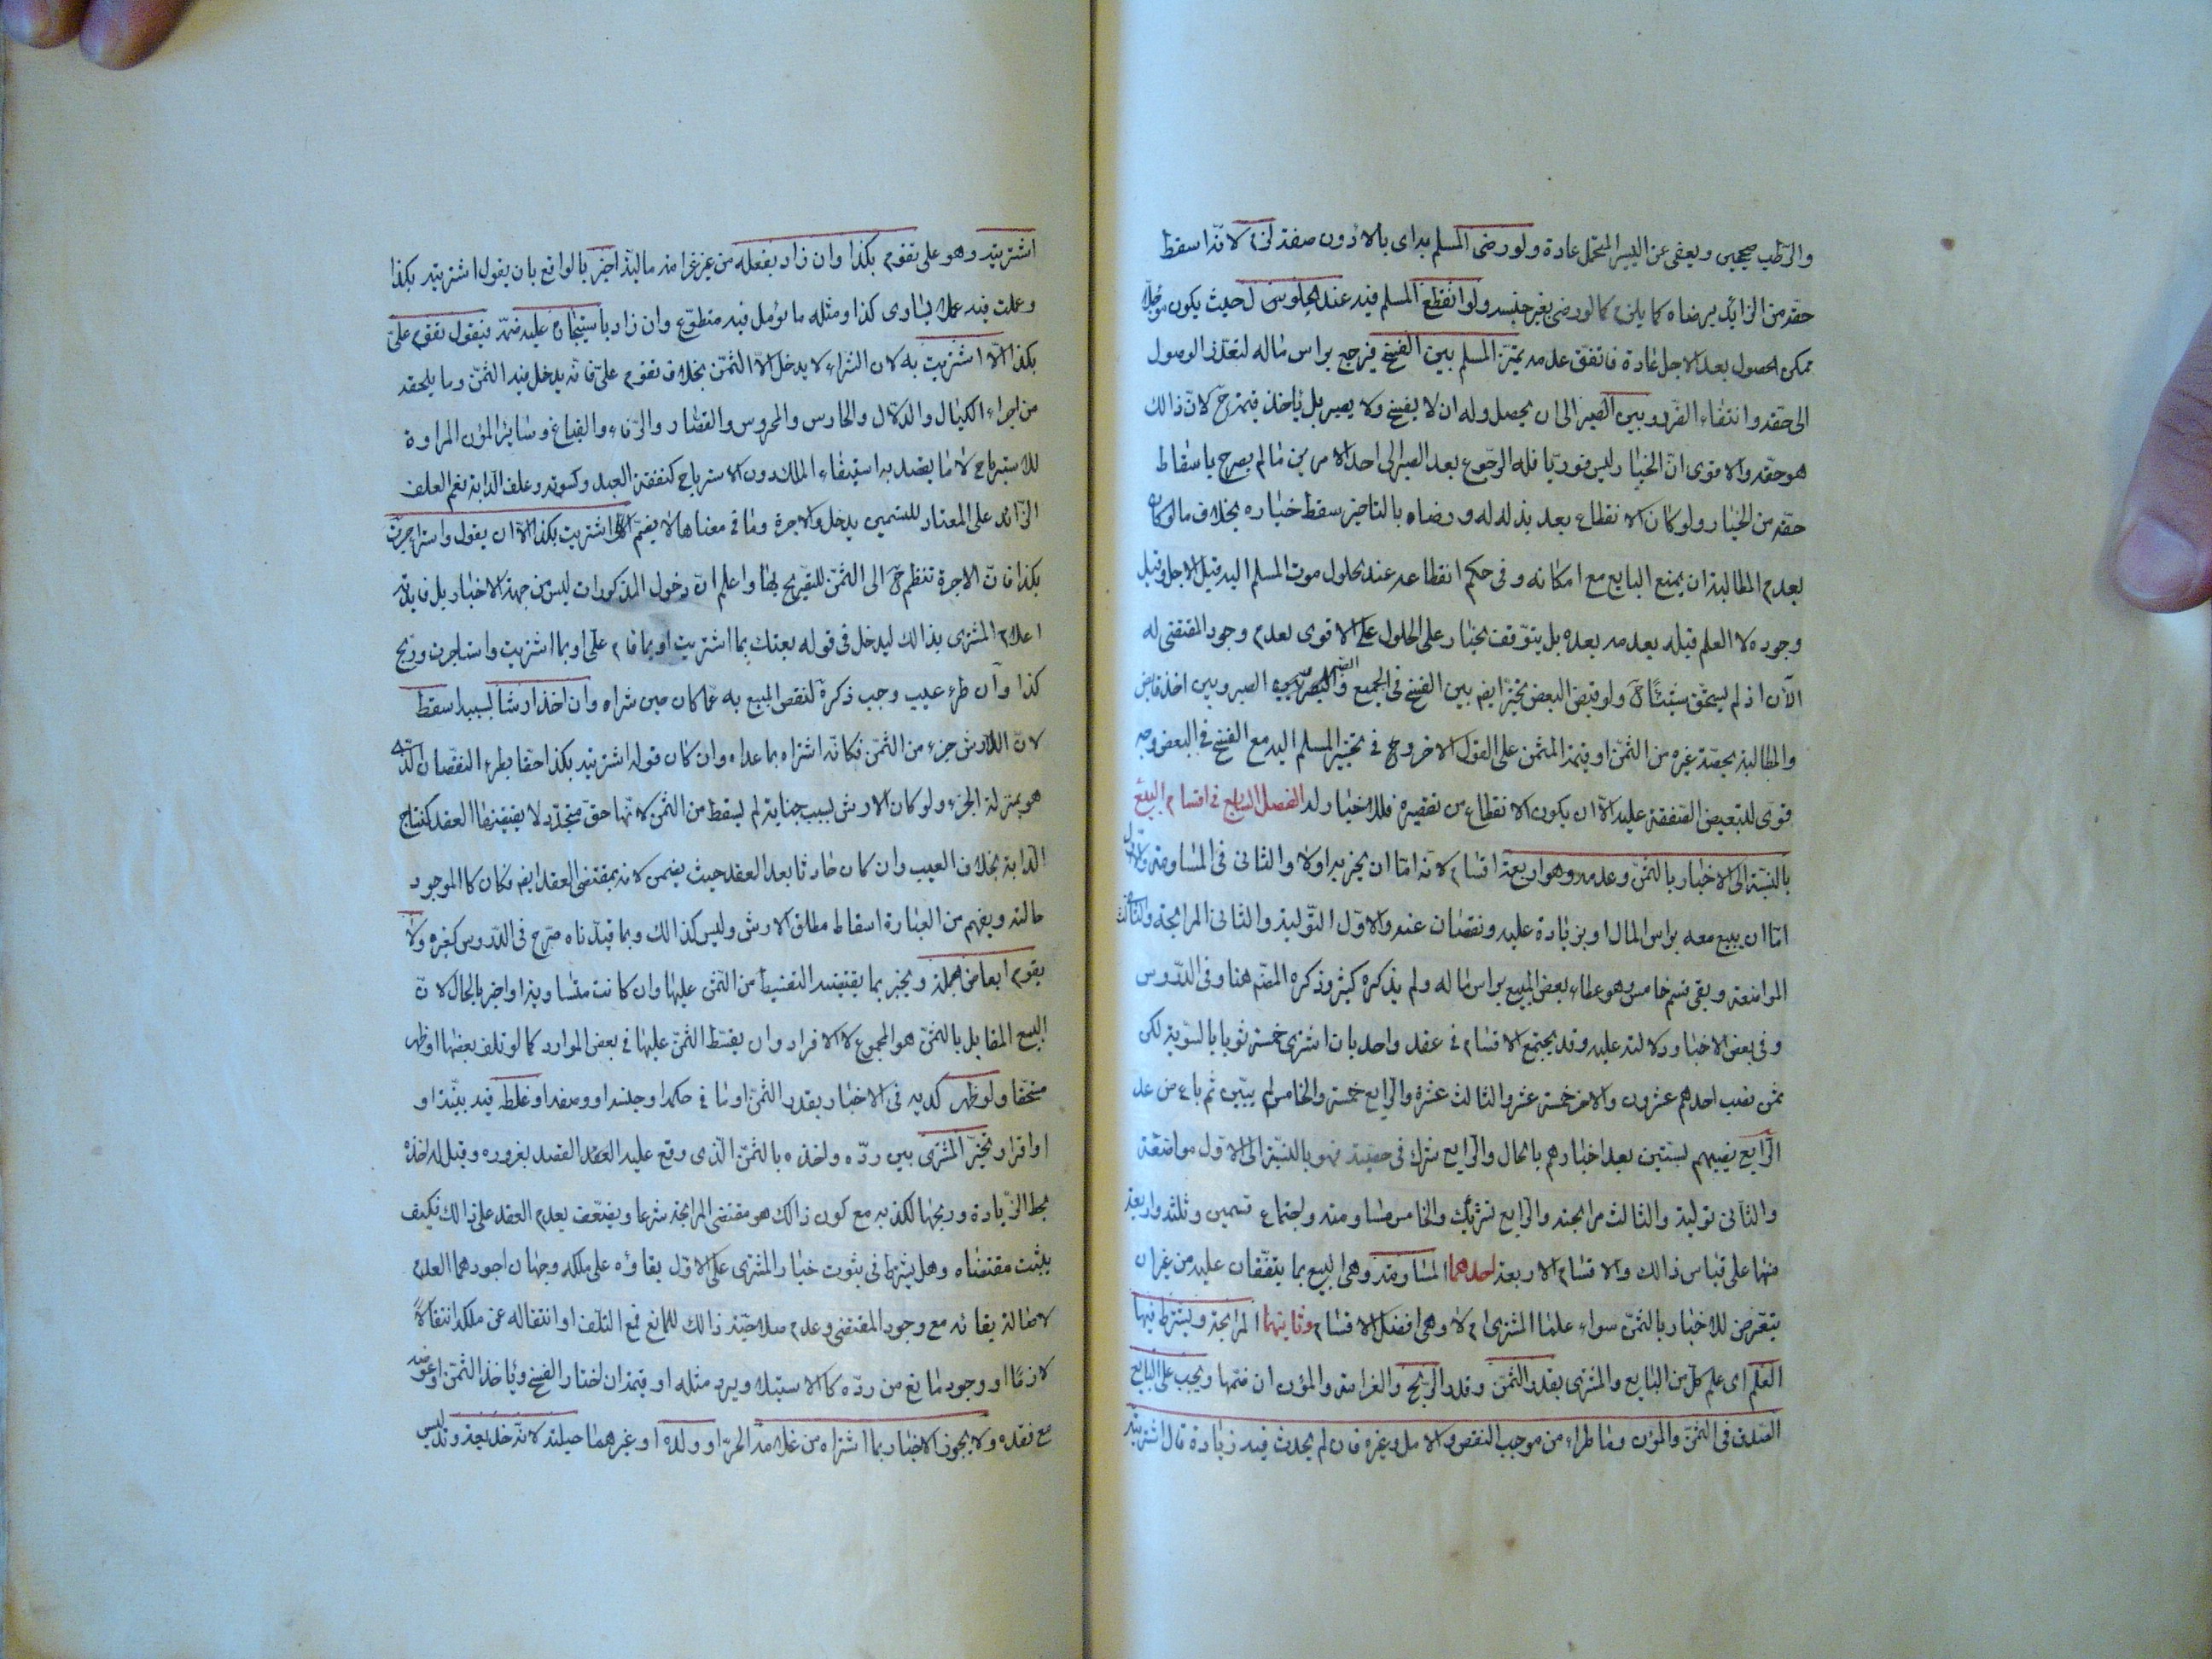 والرطب صحيحين ويعفى عن اليسير المحتمل عادة ولو رضى المسلم به اى بالادون صفة لزم لانه اسقط
حقه من الزائد برضاه كما يلزم كما لو رضى بغير جنسه ولو انقطع المسلم فيه عند الحلول حيث يكون مؤجلا
ممكن الحصول بعد الاجل عادة فاتفق عدمه تخير المسلم بين الفسخ فيرجع براس ماله لتعذر الوصول
الى حقه وانتفاء الضرر وبين الصبر الى ان يحصل وله ان لا يفسخ ولا يصبر بل ياخذ قيمته ح لان ذالك
هو حقه والاقوى ان الخيار ليس فوريا فله الرجوع بعد الصبر الى احد الامرين ما لم يصرح باسقاط
حقه من الخيار ولو كان الانقطاع بعد بذله له ورضاه بالتاخير سقط خياره بخلاف ما لو كان
بعدم المطالبة ان يمنع البايع مع امكانه وفى حكم انقطاعه عند الحلول موت المسلم اليه قبل الاجل وقبل
وجوده لا العلم قبله بعدمه بعده بل يتوقف الخيار على الحلول على الاقوى لعدم وجود المقتضى له
الآن اذ لم يستحق شيئا ولو قبض البعض تخير ايضا بين الفسخ فى الجميع والصبر وبين اخذ ما قبض
والمطالبة بحصة غيره من الثمن او قيمة المثمن على القول الاخر وح فى تخيير المسلم اليه مع الفسخ فى البعض وجه
قوى لتبعيض الصفقة عليه الا ان يكون الانقطاع من تقصيره فلا خيار له الفصل السابع فى اقسام البيع
بالنسبة الى الاخبار بالثمن وعدمه وهو اربعة اقسام لانه اما ان يخبر به اولا والثانى المساومة والاول
اما ان يبيع معه براس المال او بزيادة عليه ونقصان عنه والاول التولية والثانى المرابحة والثالث
المواضعة وبقى قسم خامس وهو عطاء بعض المبيع براس ماله ولم يذكره كثير وذكره المصنف هنا وفى الدروس
وفى بعض الاخبار دلالة عليه وقد يجتمع الاقسام فى عقد واحد بان اشترى خمسة ثوبا بالسوية لكن
ثمن نصيب احدهم عشرون والاخر خمسة عشر والثالث عشرة والرابع خمسة والخامس لم يبين ثم باع من عد
الرابع نصيبهم بستين بعد اخبارهم بالحال والرابع شرك فى حصته فهو بالنسبة الى الاول مواضعة
والثانى تولية والثالث مرابحة والرابع تشريك والخامس مساومة واجتماع قسمين وثلثة واربعة
منها على قياس ذالك والاقسام الاربعة احدهما المساومة وهى البيع بما يتفقان عليه من غير ان
يتعرض للاخبار بالثمن سواء علما المشترى ام لا وهى افضل الاقسام وثانيهما المرابحة ويشترط فيها
العلم اى علم كل من البايع والمشترى بقدر الثمن وقدر الربح والغرامة والمؤن ان ضمها ويجب على البايع
الصدق فى الثمن والمؤن وما طرا من موجب النقص والامل وغيره فان لم يحدث فيه زيادة قال اشتريته
اشتريته وهو على تقوم بكذا وان زاد بفعله من غير غرامة مالية اخبر بالواقع بان يقول اشتريته بكذا
وعملت فيه عملا يساوى كذا ومثله ما لو عمل فيه متطوع وان زاد باستيجاره عليه ضمه فيقول تقوم على
بكذا الا اشتريت به لان الشراء لا يدخل الا الثمن بخلاف تقوم على فانه يدخل فيه الثمن وما يلحقه
من اجراء الكيال والدلال والحارس والمحروس والقصار والرفاء والصباغ وسائر المؤن المرادة
للاسترباح لا ما يقصد به استيفاء الملك دون الاسترباح كنفقة العبد وكسوته وعلف الدابة نعم العلف
الزائد على المعتاد للتسمين يدخل والاجرة وما فى معناها لا يضم الى اشتريت بكذا الا ان يقول واستاجرت
بكذا فان الاجرة تنظم ح الى الثمن للتصريح بها واعلم ان دخول المذكورات ليس من جهة الاخبار بل فايدة
اعلام المشترى بذالك ليدخل فى قوله بعتك بما اشتريت او بما قام على او بما اشتريت واستاجرت وربح
كذا وان طرء عيب وجب ذكره لنقص المبيع به عما كان حين شراه وان اخذ ارشا بسببه اسقط
لان الارش جزء من الثمن فكانه اشتراه بما عداه وان كان قوله اشتريته بكذا حقا بطرء النقصان الذى
هو بمنزلة الجزء ولو كان الارش بسبب جناية لم يسقط من الثمن لانها حق متجدد لا يقتضيها العقد كنتاج
الدابة بخلاف العيب وان كان حادثا بعد العقد حيث يضمن لانه بمقتضى العقد ايضا فكان كالموجود
حالته ويفهم من العبارة اسقاط مطلق الارش وليس كذالك وبما قيدناه صرح فى الدروس كغيره ولا
يقوم ابعاض الجملة ويخبر بما يقتضيه التقسيط من الثمن عليها وان كانت متساوية او اخبر بالحال لان
البيع المقابل بالثمن هو المجموع لا الافراد وان يقسط الثمن عليها فى بعض الموارد كما لو تلف بعضها او ظهر
مستحقا ولو ظهر كذبه فى الاخبار بقدر الثمن او ما فى حكمه او جنسه او وصفه او غلطه فيه ببينة او
او اقرار تخير المشترى بين رده واخذه بالثمن الذى وقع عليه العقد القصد بغروره وقيل له اخذه
بحط الزيادة وربحها لكذبه مع كون ذالك هو مقتضى المرابحة شرعا ويضعف بعدم العقد على ذالك فكيف
يثبت مقتضاه وهل يشترط فى ثبوت خيار المشترى على الاول بقاؤه على ملكه وجهان اجودهما العدم
لاصالة بقائه مع وجود المقتضى وعدم صلاحية ذالك للمانع فمع التلف او انتقاله عن ملكه انتقالا
لازما او وجود مانع من رده كالاستيلاد يرد مثله او قيمته ان اختار الفسخ وياخذ الثمن او عوضه
مع فقده ولا يجوز الاخبار بما اشتراه من غلامه الحر او ولده او غيرهما حيلة لانه خديعة وتدليس